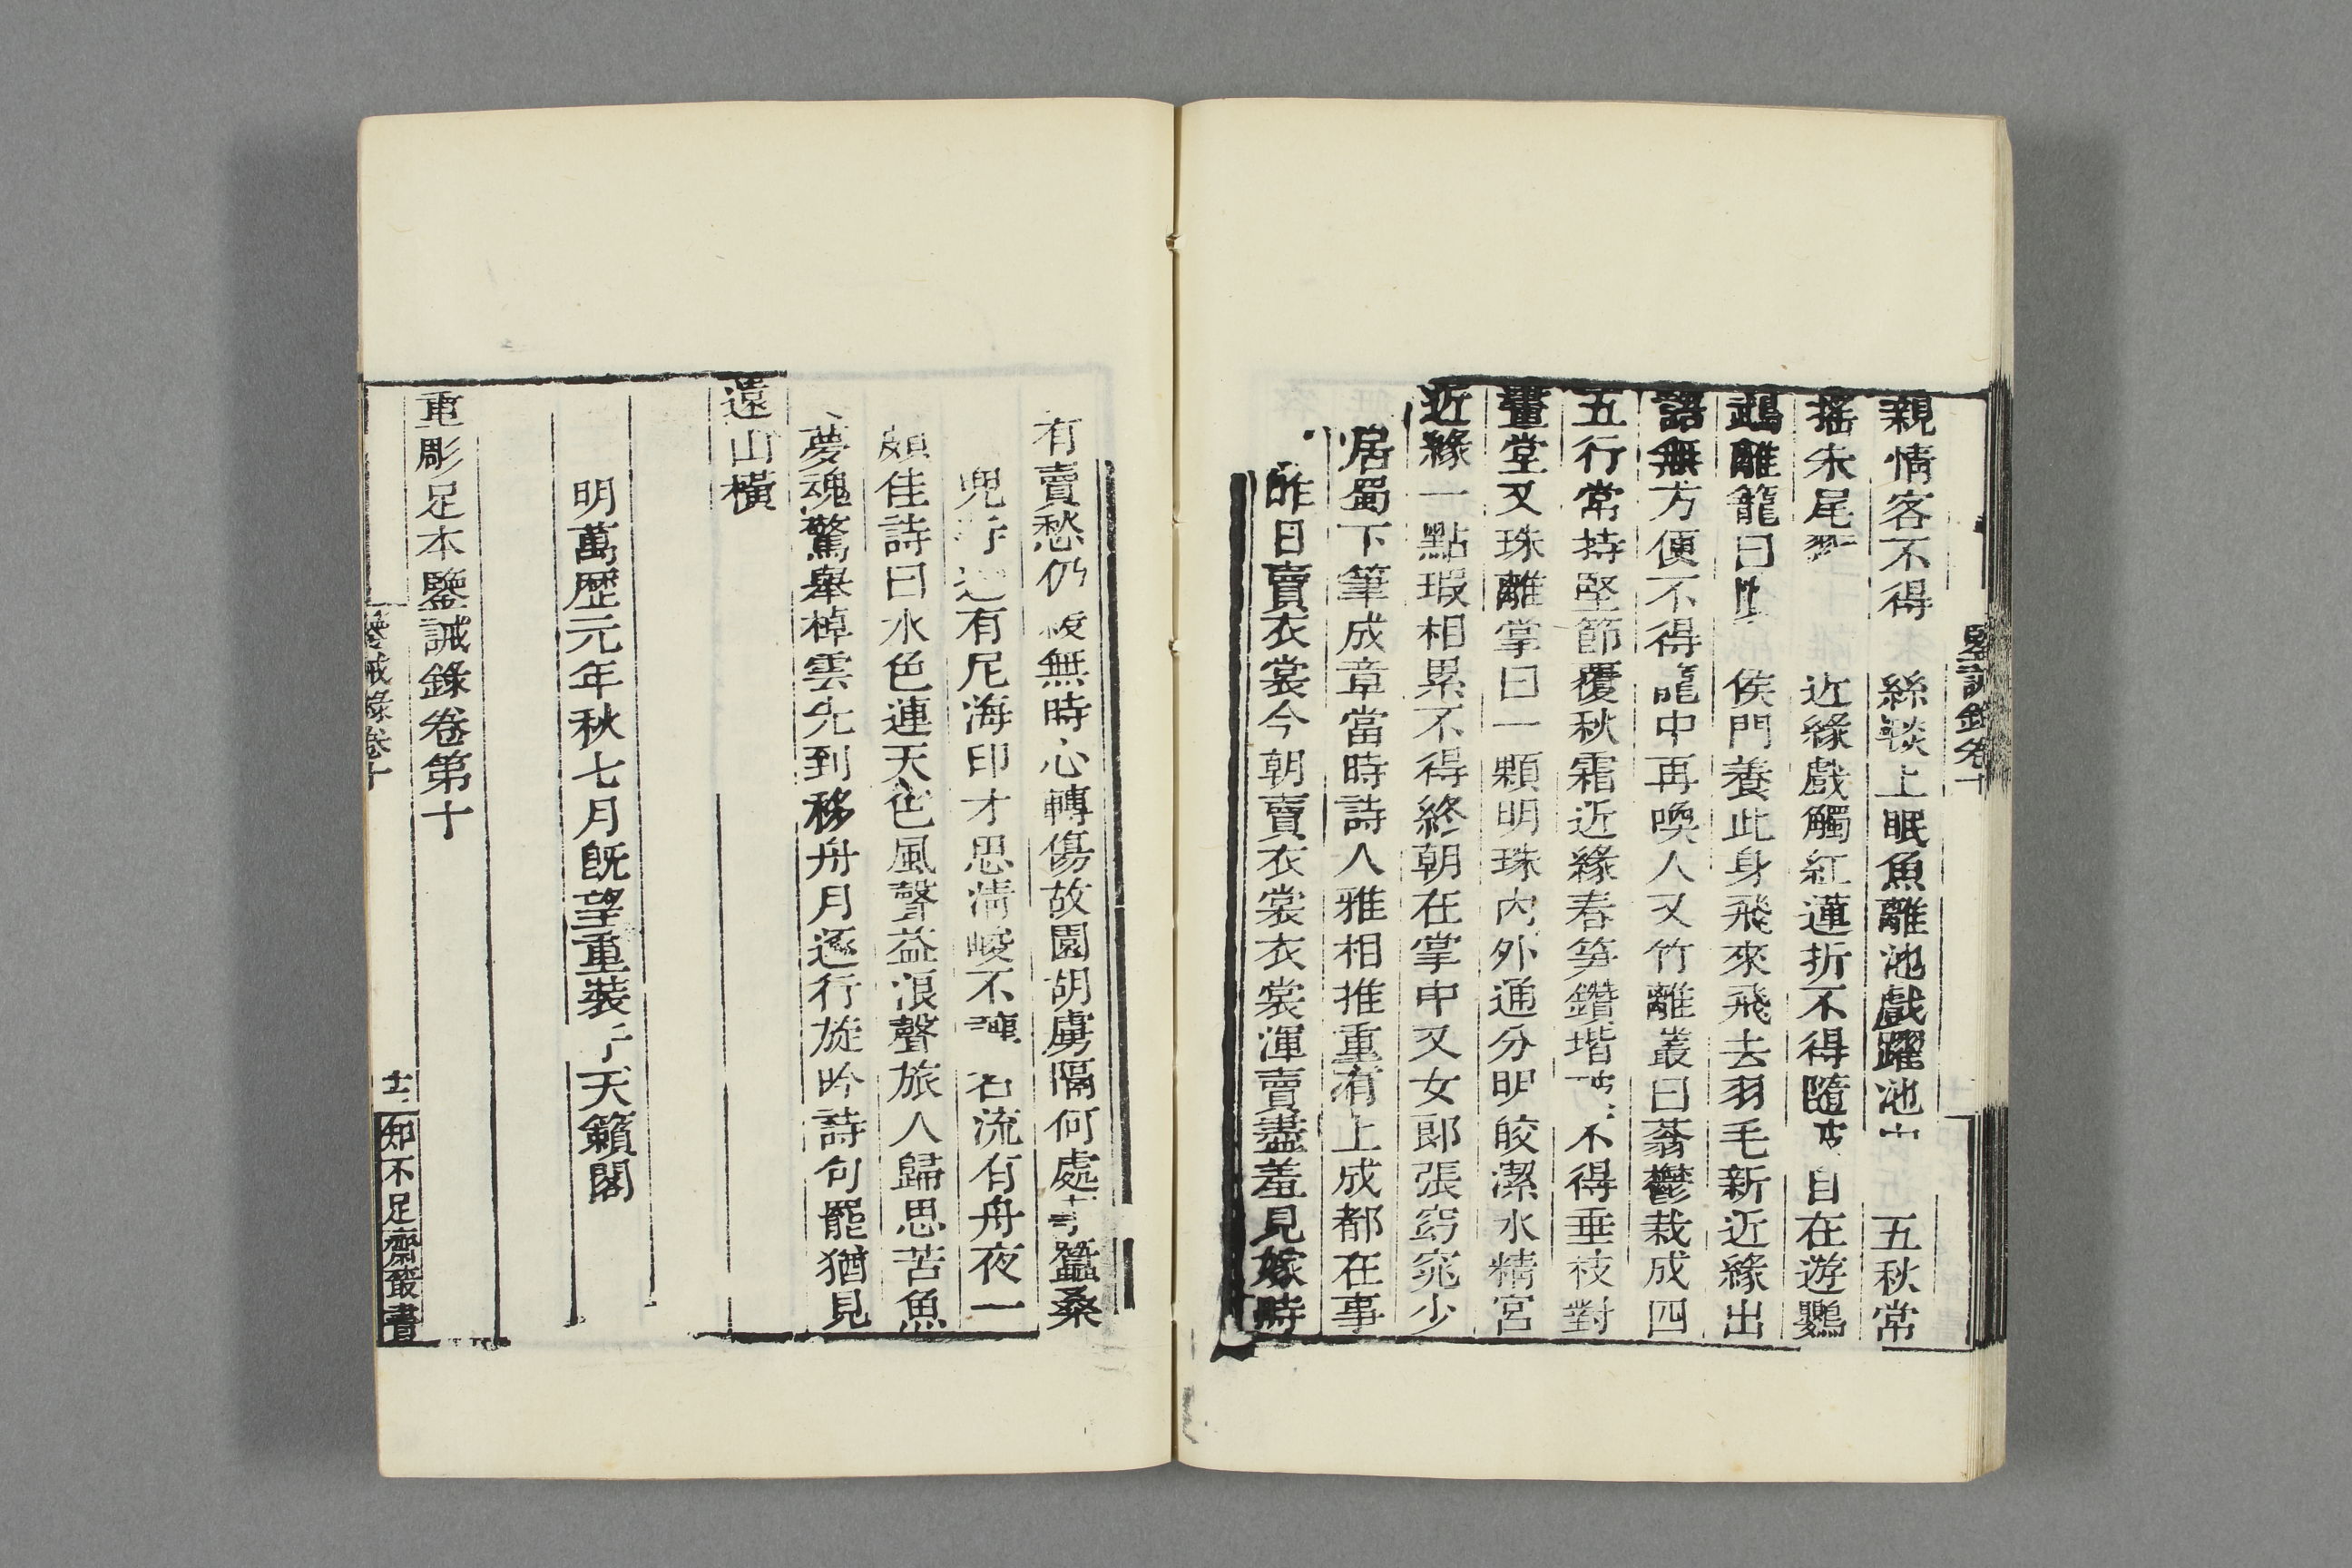 鑒誡錄卷十
親情客不得 絲毯上眠魚離池戲躍池 五秋常
搖朱尾 近緣戲觸紅蓮折不得隨 自在遊鸚
鵡離籠曰 侯門養此身飛來飛去羽毛新近緣出
語無方便不得籠中再喚人又竹離叢曰蓊鬱栽成四
五行常持堅節覆秋霜近緣春筍鑽堦 不得垂枝對
畫堂又珠離掌曰一顆明珠內外通分明皎潔水精宮
近緣一點瑕相累不得終朝在掌中又女郎張窈窕少
居蜀下筆成章當時詩人雅相推重有上成都在事
昨日賣衣裳今朝賣衣裳衣裳渾賣盡羞見嫁時
有賣愁仍 無時心轉傷故園胡虜隔何處 蠶桑
有尼海印才思清峻不 流有舟夜一
頗佳詩曰水色連天色風聲益浪聲旅人歸思苦魚
夢魂驚舉棹雲先到移舟月逐行旋吟詩句罷猶見
遠山橫
明萬歷元年秋七月旣望重裝 天籟閣
重彫足本鑒誡錄卷第十
鑒誡錄卷十 知不足齋叢書